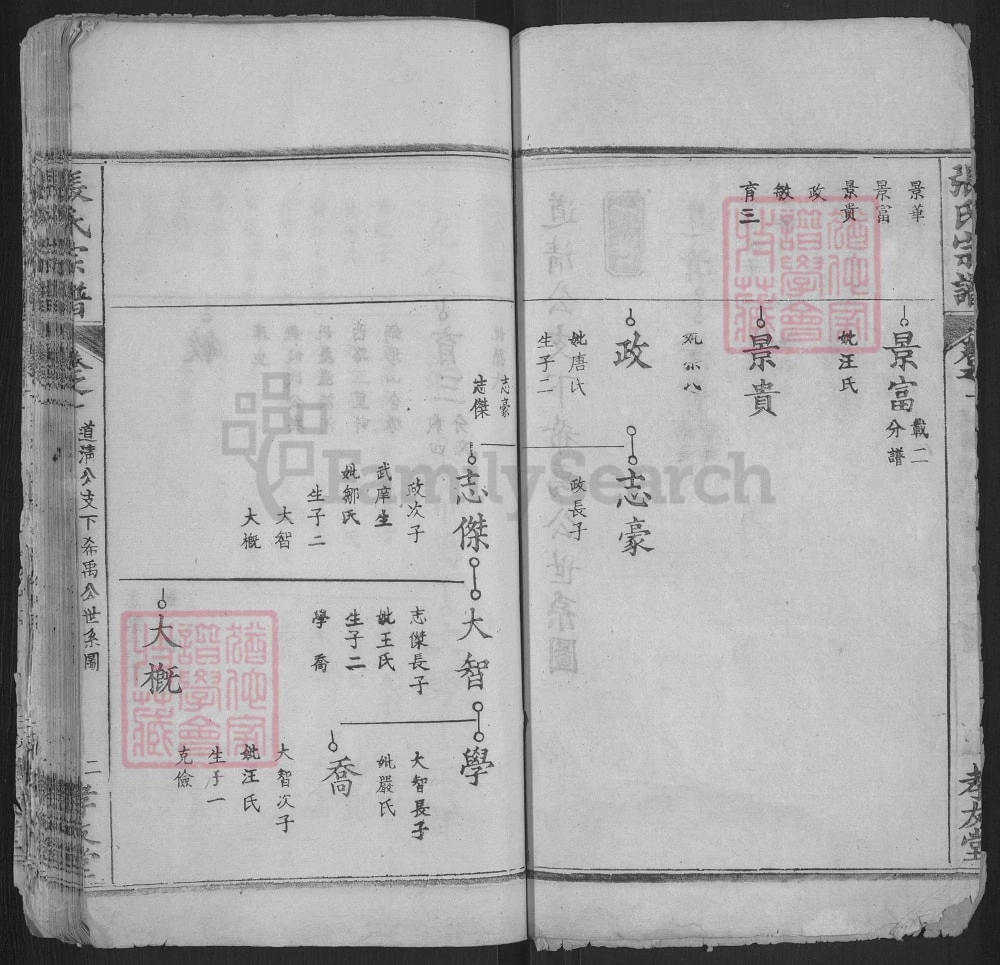 張氏宗譜
孝友堂
景華
景富
景貴
政
敏
育三
景富
載二
分譜
妣汪氏
景貴
政
妣唐氏
生子二
志豪
志傑
志豪
政長子
志傑
政次子
武庠生
妣鄒氏
生子二
大智
大概
大智
志傑長子
妣王氏
生子二
學
喬
學
大智長子
妣嚴氏
喬
大智次子
妣汪氏
生子一
克儉
大概
張氏宗譜
卷之一
道清公支下希禹公世系圖
二
孝友堂
FamilySearch